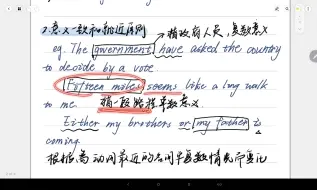 2.意义一致和邻近原则
指政府人员,复数意义
eg. The government have asked the country
to decide by a vote.
Fifteen miles seems like a long walk
to me. 指一段路程单数意义
Either my brothers or my father is
coming.
根据离动词最近的名词单复数情况而变化